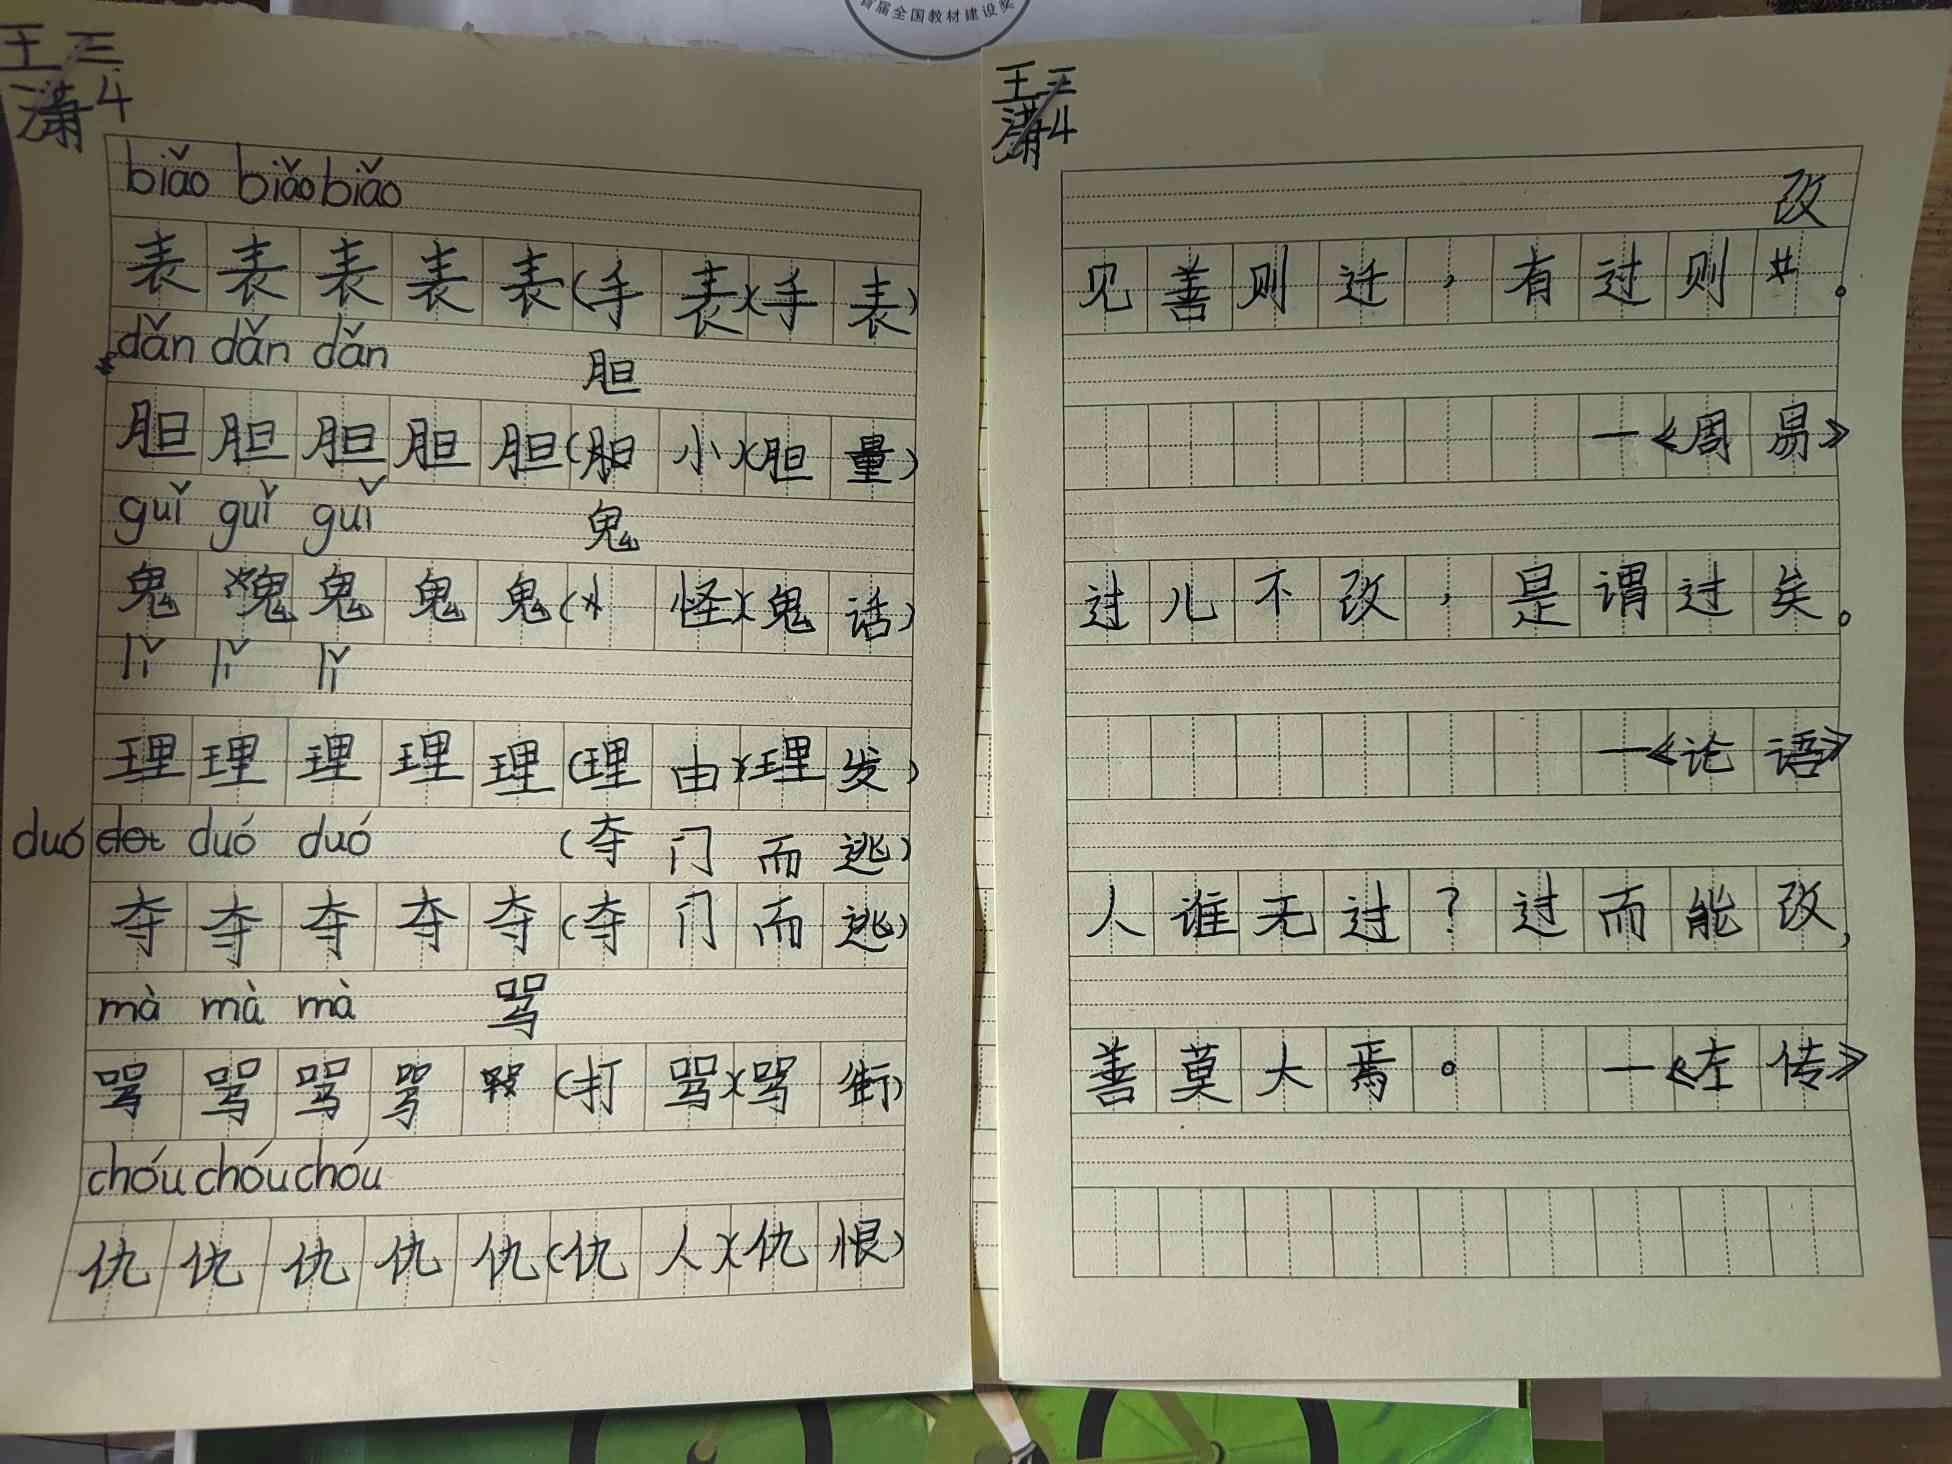 首届全国教材建设奖
王三
4
biǎo biǎo biǎo
表表表表表(手表)(手表)
dǎn dǎn dǎn
胆
胆胆胆胆胆(胆小)(胆量)
guǐ guǐ guǐ
鬼
鬼鬼鬼鬼鬼(怪)(鬼话)
lǐ lǐ lǐ
理理理理理(理由)(理发)
duó duó duó (夺门而逃)
夺夺夺夺夺(夺门而逃)
mà mà mà
骂
骂骂骂骂(打骂)(骂街)
chóu chóu chóu
仇仇仇仇仇(仇人)(仇恨)
王三
4
改
见善则迁，有过则。
—《周易》
过儿不改，是谓过矣。
—《论语》
人谁无过？过而能改，
善莫大焉。—《左传》